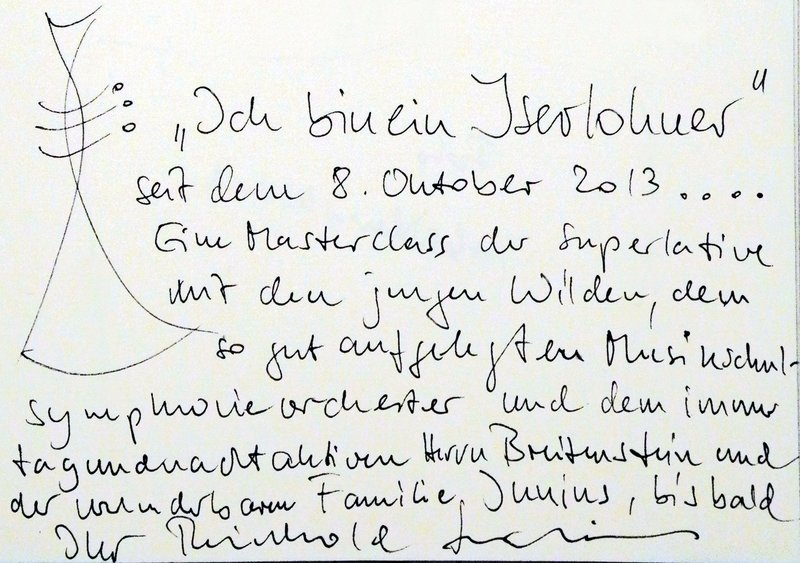 „Ich bin ein Iserlohner"
seit dem 8. Oktober 2013....
Eine Masterclass der Superlative
mit den jungen Wilden, dem
so gut aufgelegten Musikschul-
symphonieorchester und dem immer
tagundnachtaktiven Herrn Breitenstein und
der wunderbaren Familie Junius, bis bald
Ihr Reinhold